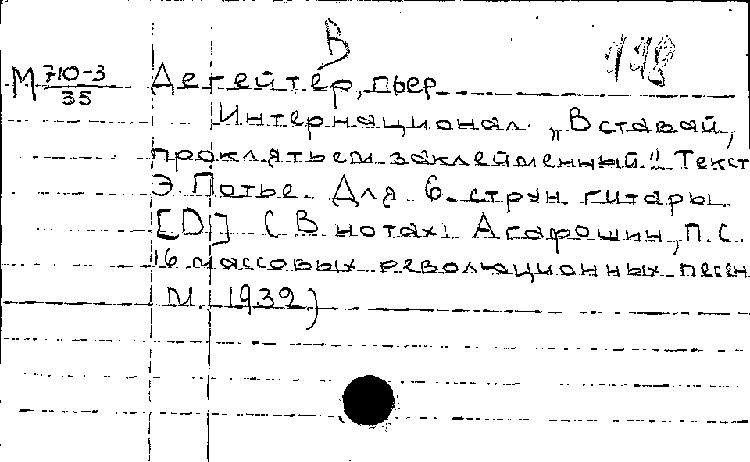 В
М 710-3 Дегейтер, Пьер
35
Интернационал. „Вставай,
проклятьем заклейменный." Текст
Э. Потье. Для 6. струн. гитары.
[D] (В нотах: Агафошин, П.С.
16 массовых революционных песен
М. 1932)